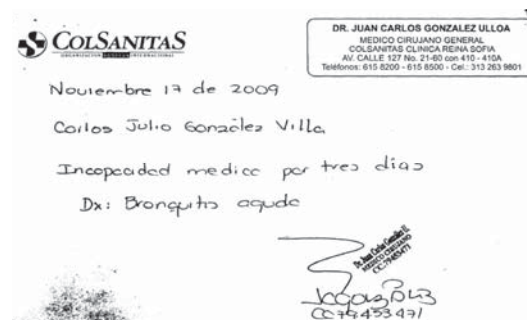 COLSANITAS
ORGANIZACION SANITAS INTERNACIONAL
DR. JUAN CARLOS GONZALEZ ULLOA
MEDICO CIRUJANO GENERAL
COLSANITAS CLINICA REINA SOFIA
AV. CALLE 127 No. 21-60 con 410 - 410A
Teléfonos: 615 8200 - 615 8500 - Cel.: 313 263 9801
Noviembre 17 de 2009
Carlos Julio Gonzalez Villa
Incapacidad medica por tres dias
Dx: Bronquitis aguda
Dr. Juan Carlos González U.
MEDICO CIRUJANO
CC. 79453471
CC 79.453.471